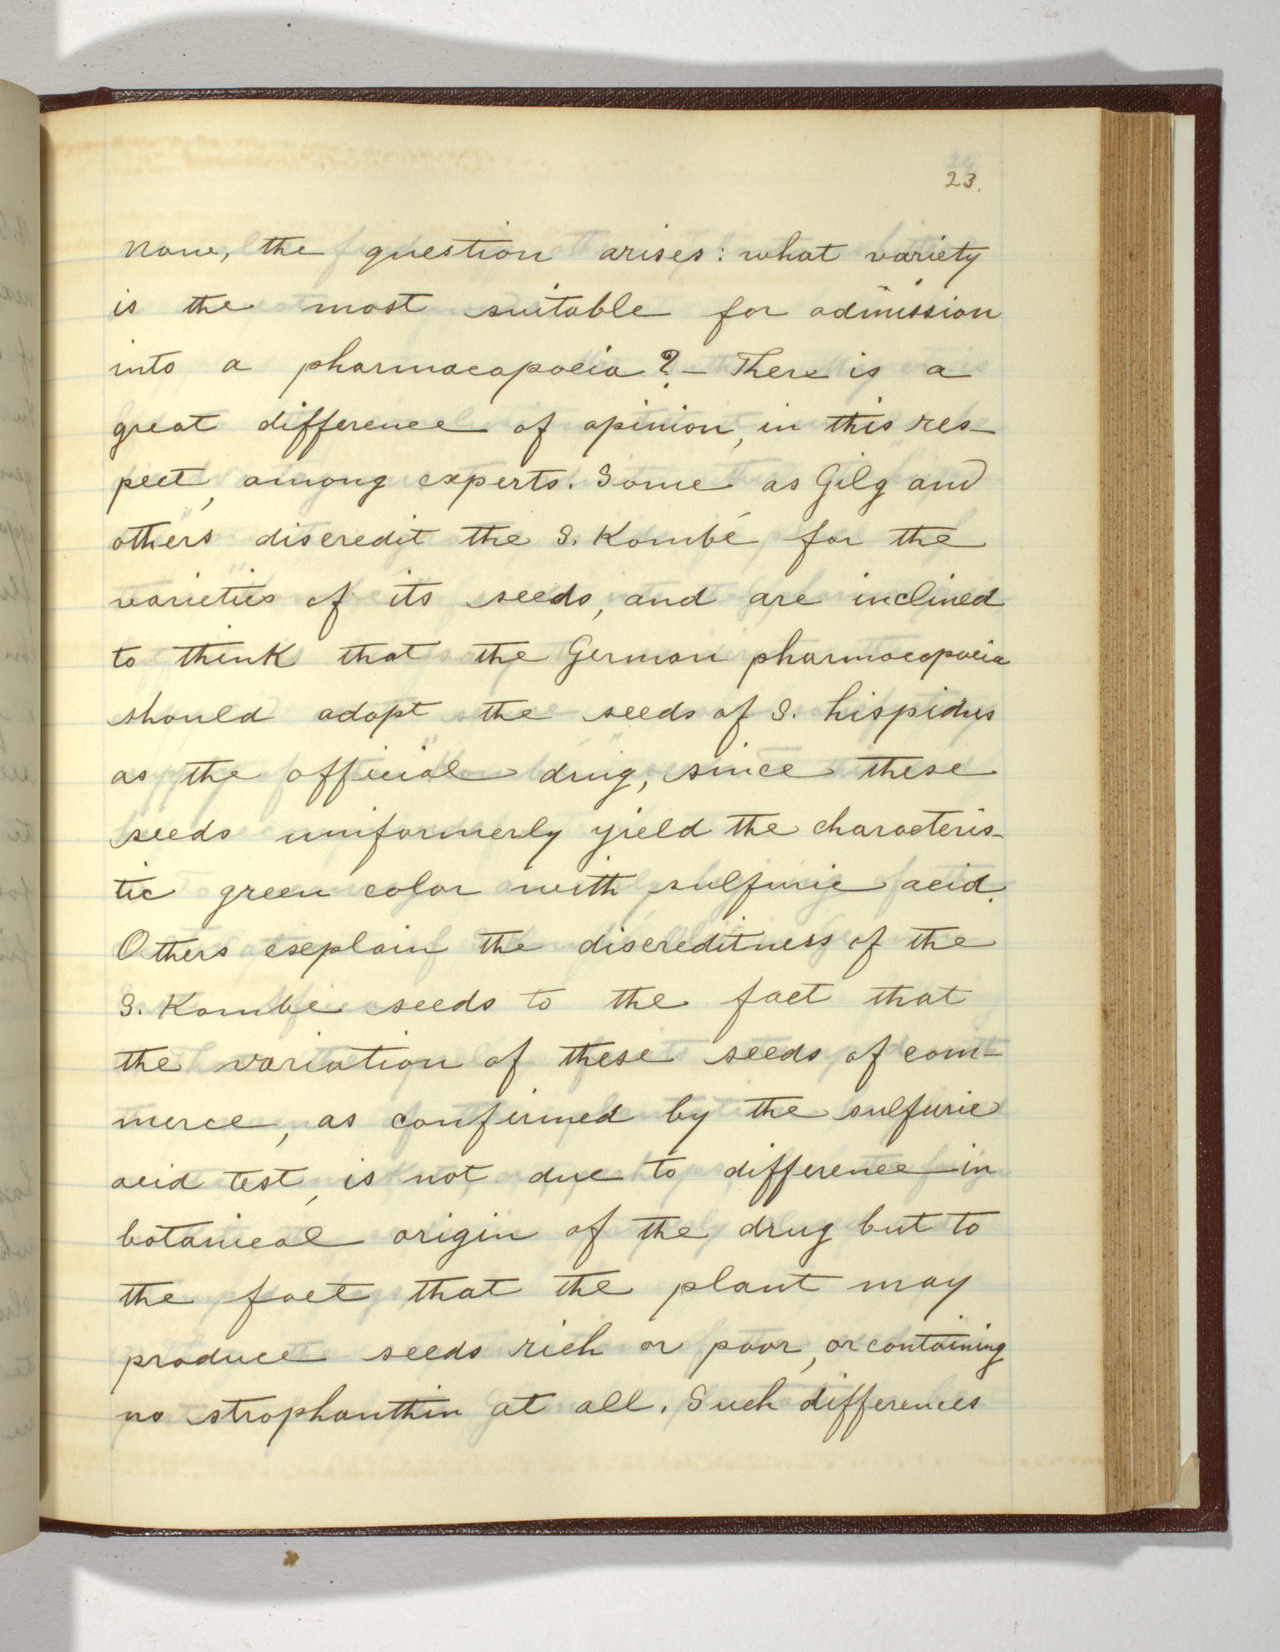 23.
Now, the question arises: what variety
is the most suitable for admission
into a pharmacopoeia? – There is a
great difference of opinion, in this res-
pect, among experts. Some as Gilg and
others discredit the S. Kombé for the
varieties of its seeds, and are inclined
to think that the German pharmacopoeia
should adopt the seeds of S. hispidus
as the official drug, since these
seeds uniformerly yield the characteris-
tic green color with sulfuric acid.
Others explain the discreditness of the
S. Kombé seeds to the fact that
the variation of these seeds of com-
merce, as confirmed by the sulfuric
acid test, is not due to difference in
botanical origin of the drug but to
the fact that the plant may
produce seeds rich or poor, or containing
no strophanthin at all. Such differences